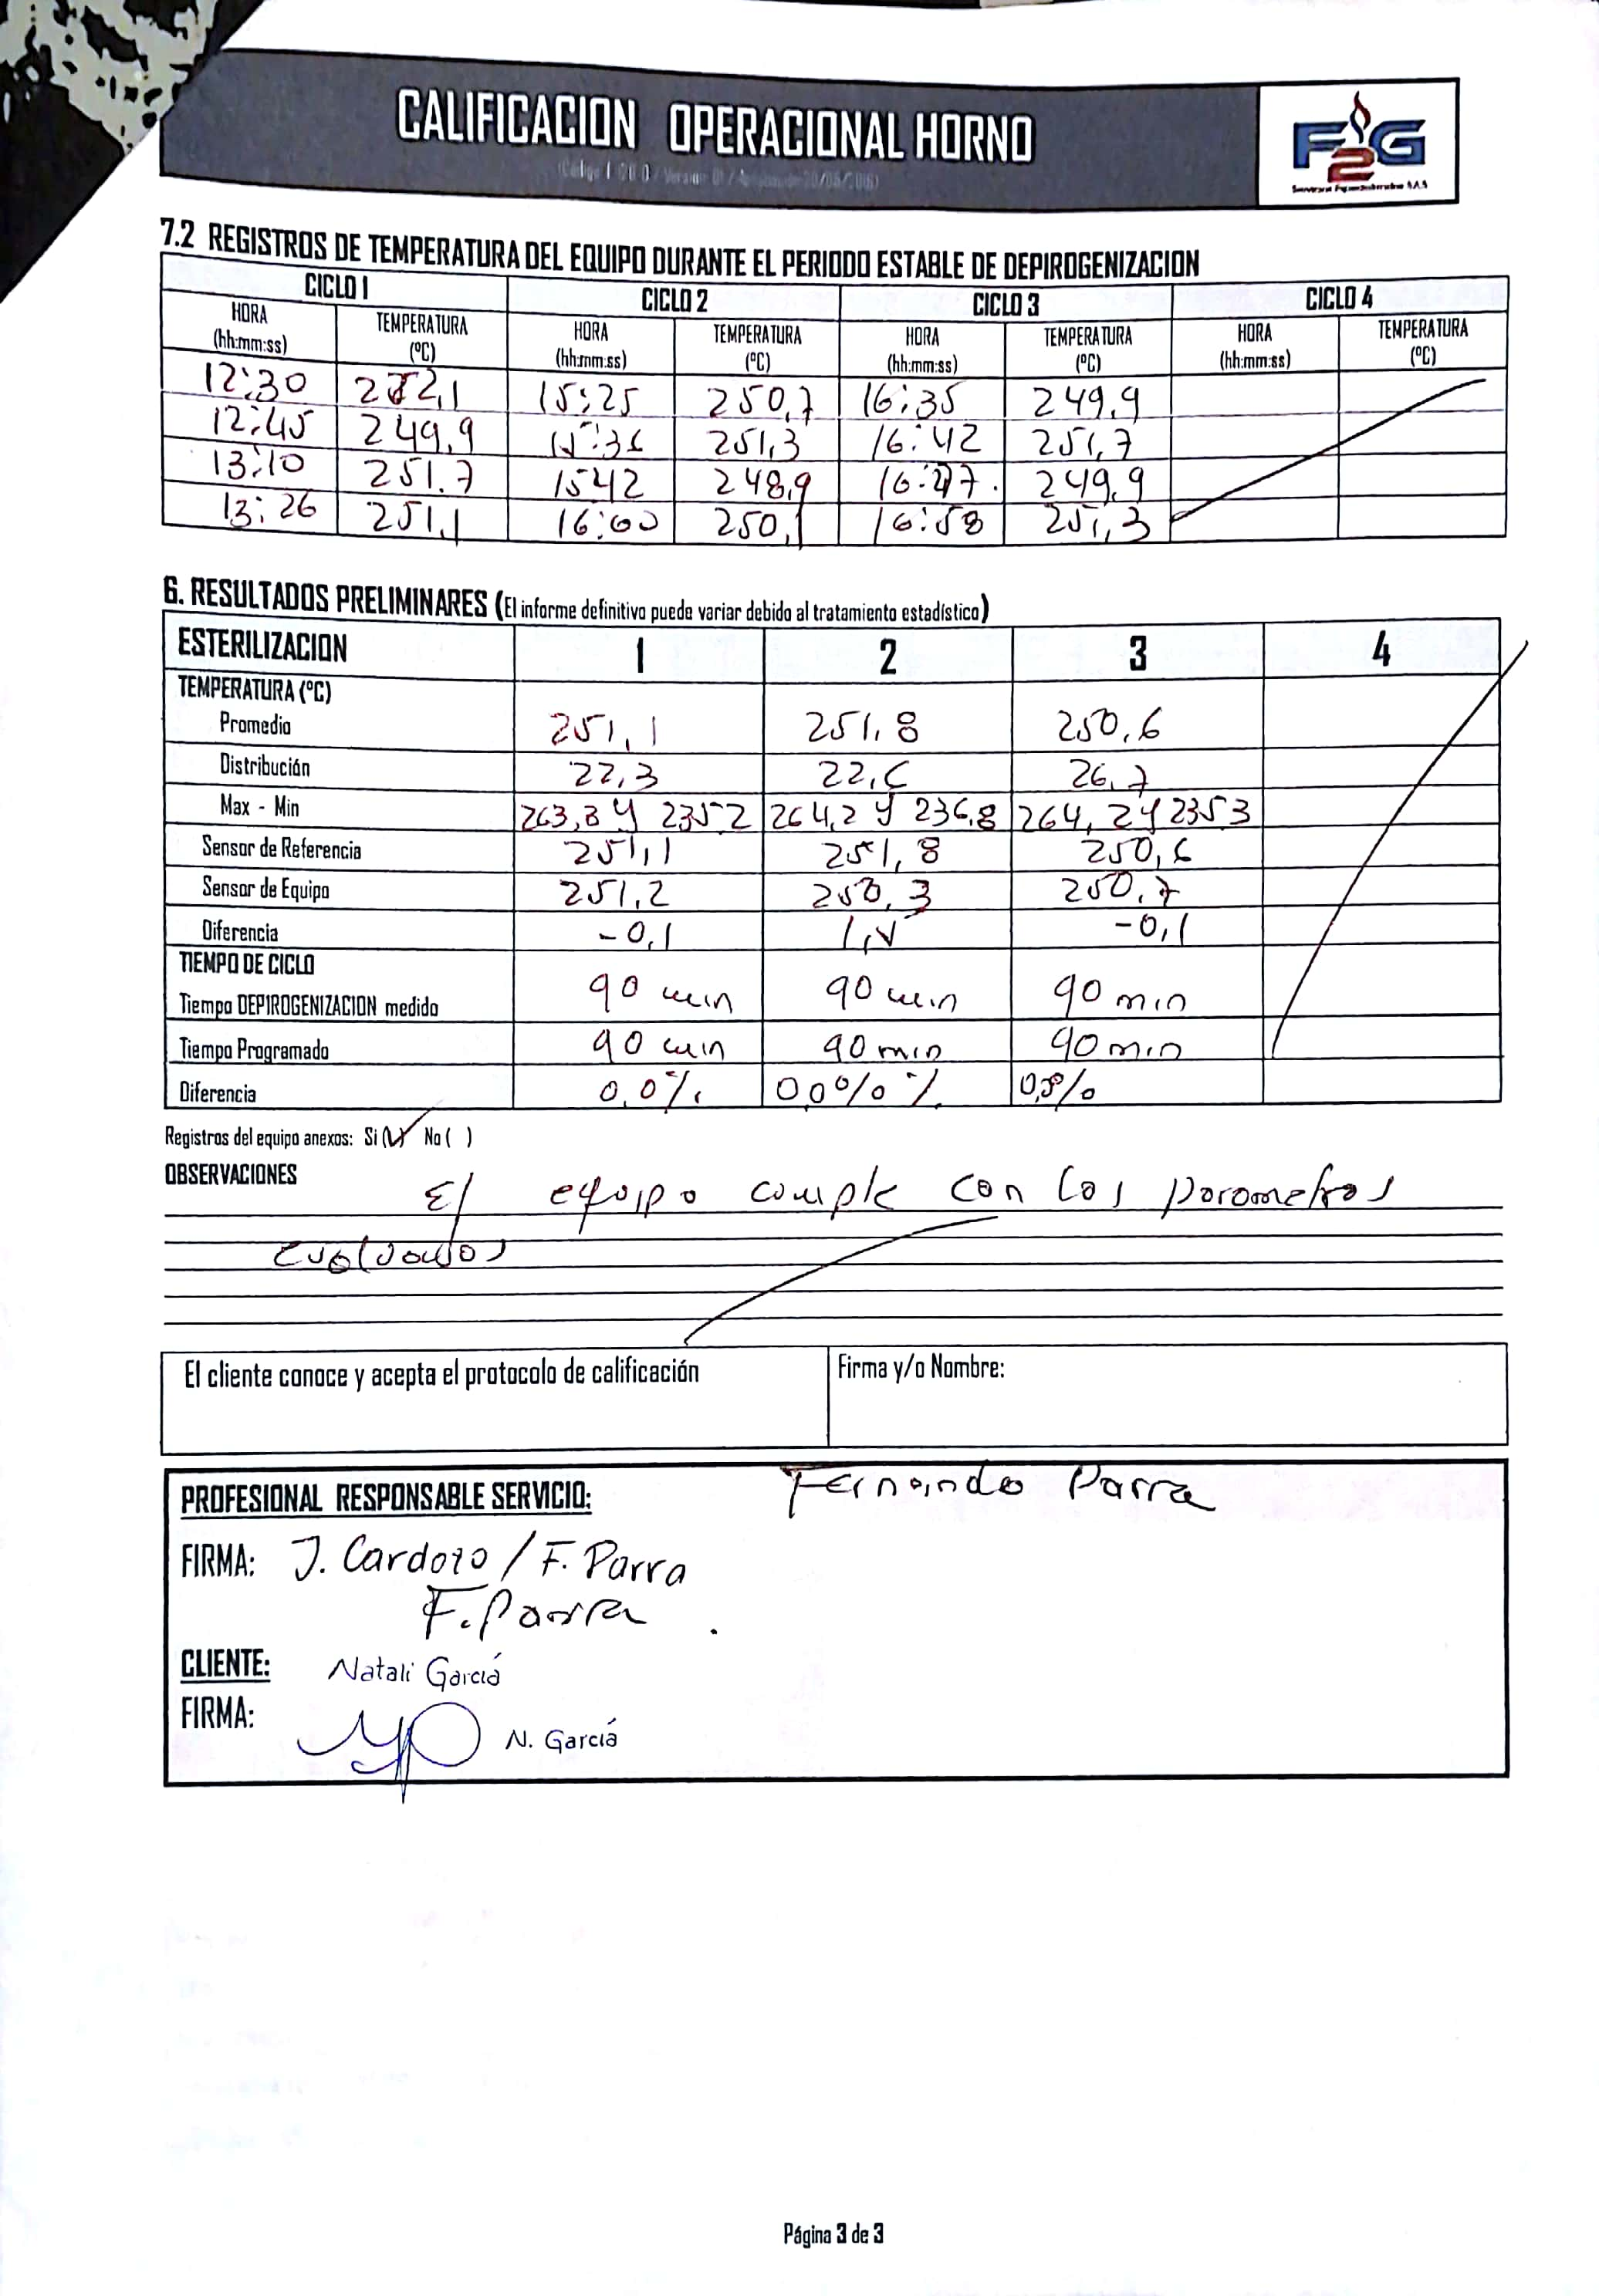 CALIFICACION OPERACIONAL HORNO
F2G
7.2 REGISTROS DE TEMPERATURA DEL EQUIPO DURANTE EL PERIODO ESTABLE DE DEPIROGENIZACION
CICLO 1 CICLO 2 CICLO 3 CICLO 4
HORA (hh:mm:ss) TEMPERATURA (ºC) HORA (hh:mm:ss) TEMPERATURA (ºC) HORA (hh:mm:ss) TEMPERATURA (ºC) HORA (hh:mm:ss) TEMPERATURA (ºC)
12:30 15:25 250,7 16:35 249,9
12:45 249,9 15:36 251,3 16:42 251,7
13:10 251.7 1542 248,9 251,7 249,9
13:26 251,1 16:00 250,1 16:58 251,3
6. RESULTADOS PRELIMINARES (El informe definitivo puede variar debido al tratamiento estadístico)
ESTERILIZACION 1 2 3 4
TEMPERATURA (ºC)
Promedio 251,1 251,8 250,6
Distribución 22,3 22,6 26,7
Max - Min 263,8 y 2352 264,2 y 236,8 264,2 y 2353
Sensor de Referencia 251,1 251,8 250,6
Sensor de Equipo 251,2 250,3 250,7
Diferencia -0,1 -0,1
TIEMPO DE CICLO
Tiempo DEPIROGENIZACION medido 90 min 90 min 90 min
Tiempo Programado 90 min 90 min 90 min
Diferencia 0,0% 0,0% % 0,0%
Registros del equipo anexos: Si ( ) No ( )
OBSERVACIONES El equipo cumple con los parametros
evaluados
El cliente conoce y acepta el protocolo de calificación
Firma y/o Nombre:
PROFESIONAL RESPONSABLE SERVICIO: Fernando Parra
FIRMA: J. Cardozo / F. Parra
F. Parra
CLIENTE: Natali García
FIRMA: N. García
Página 3 de 3